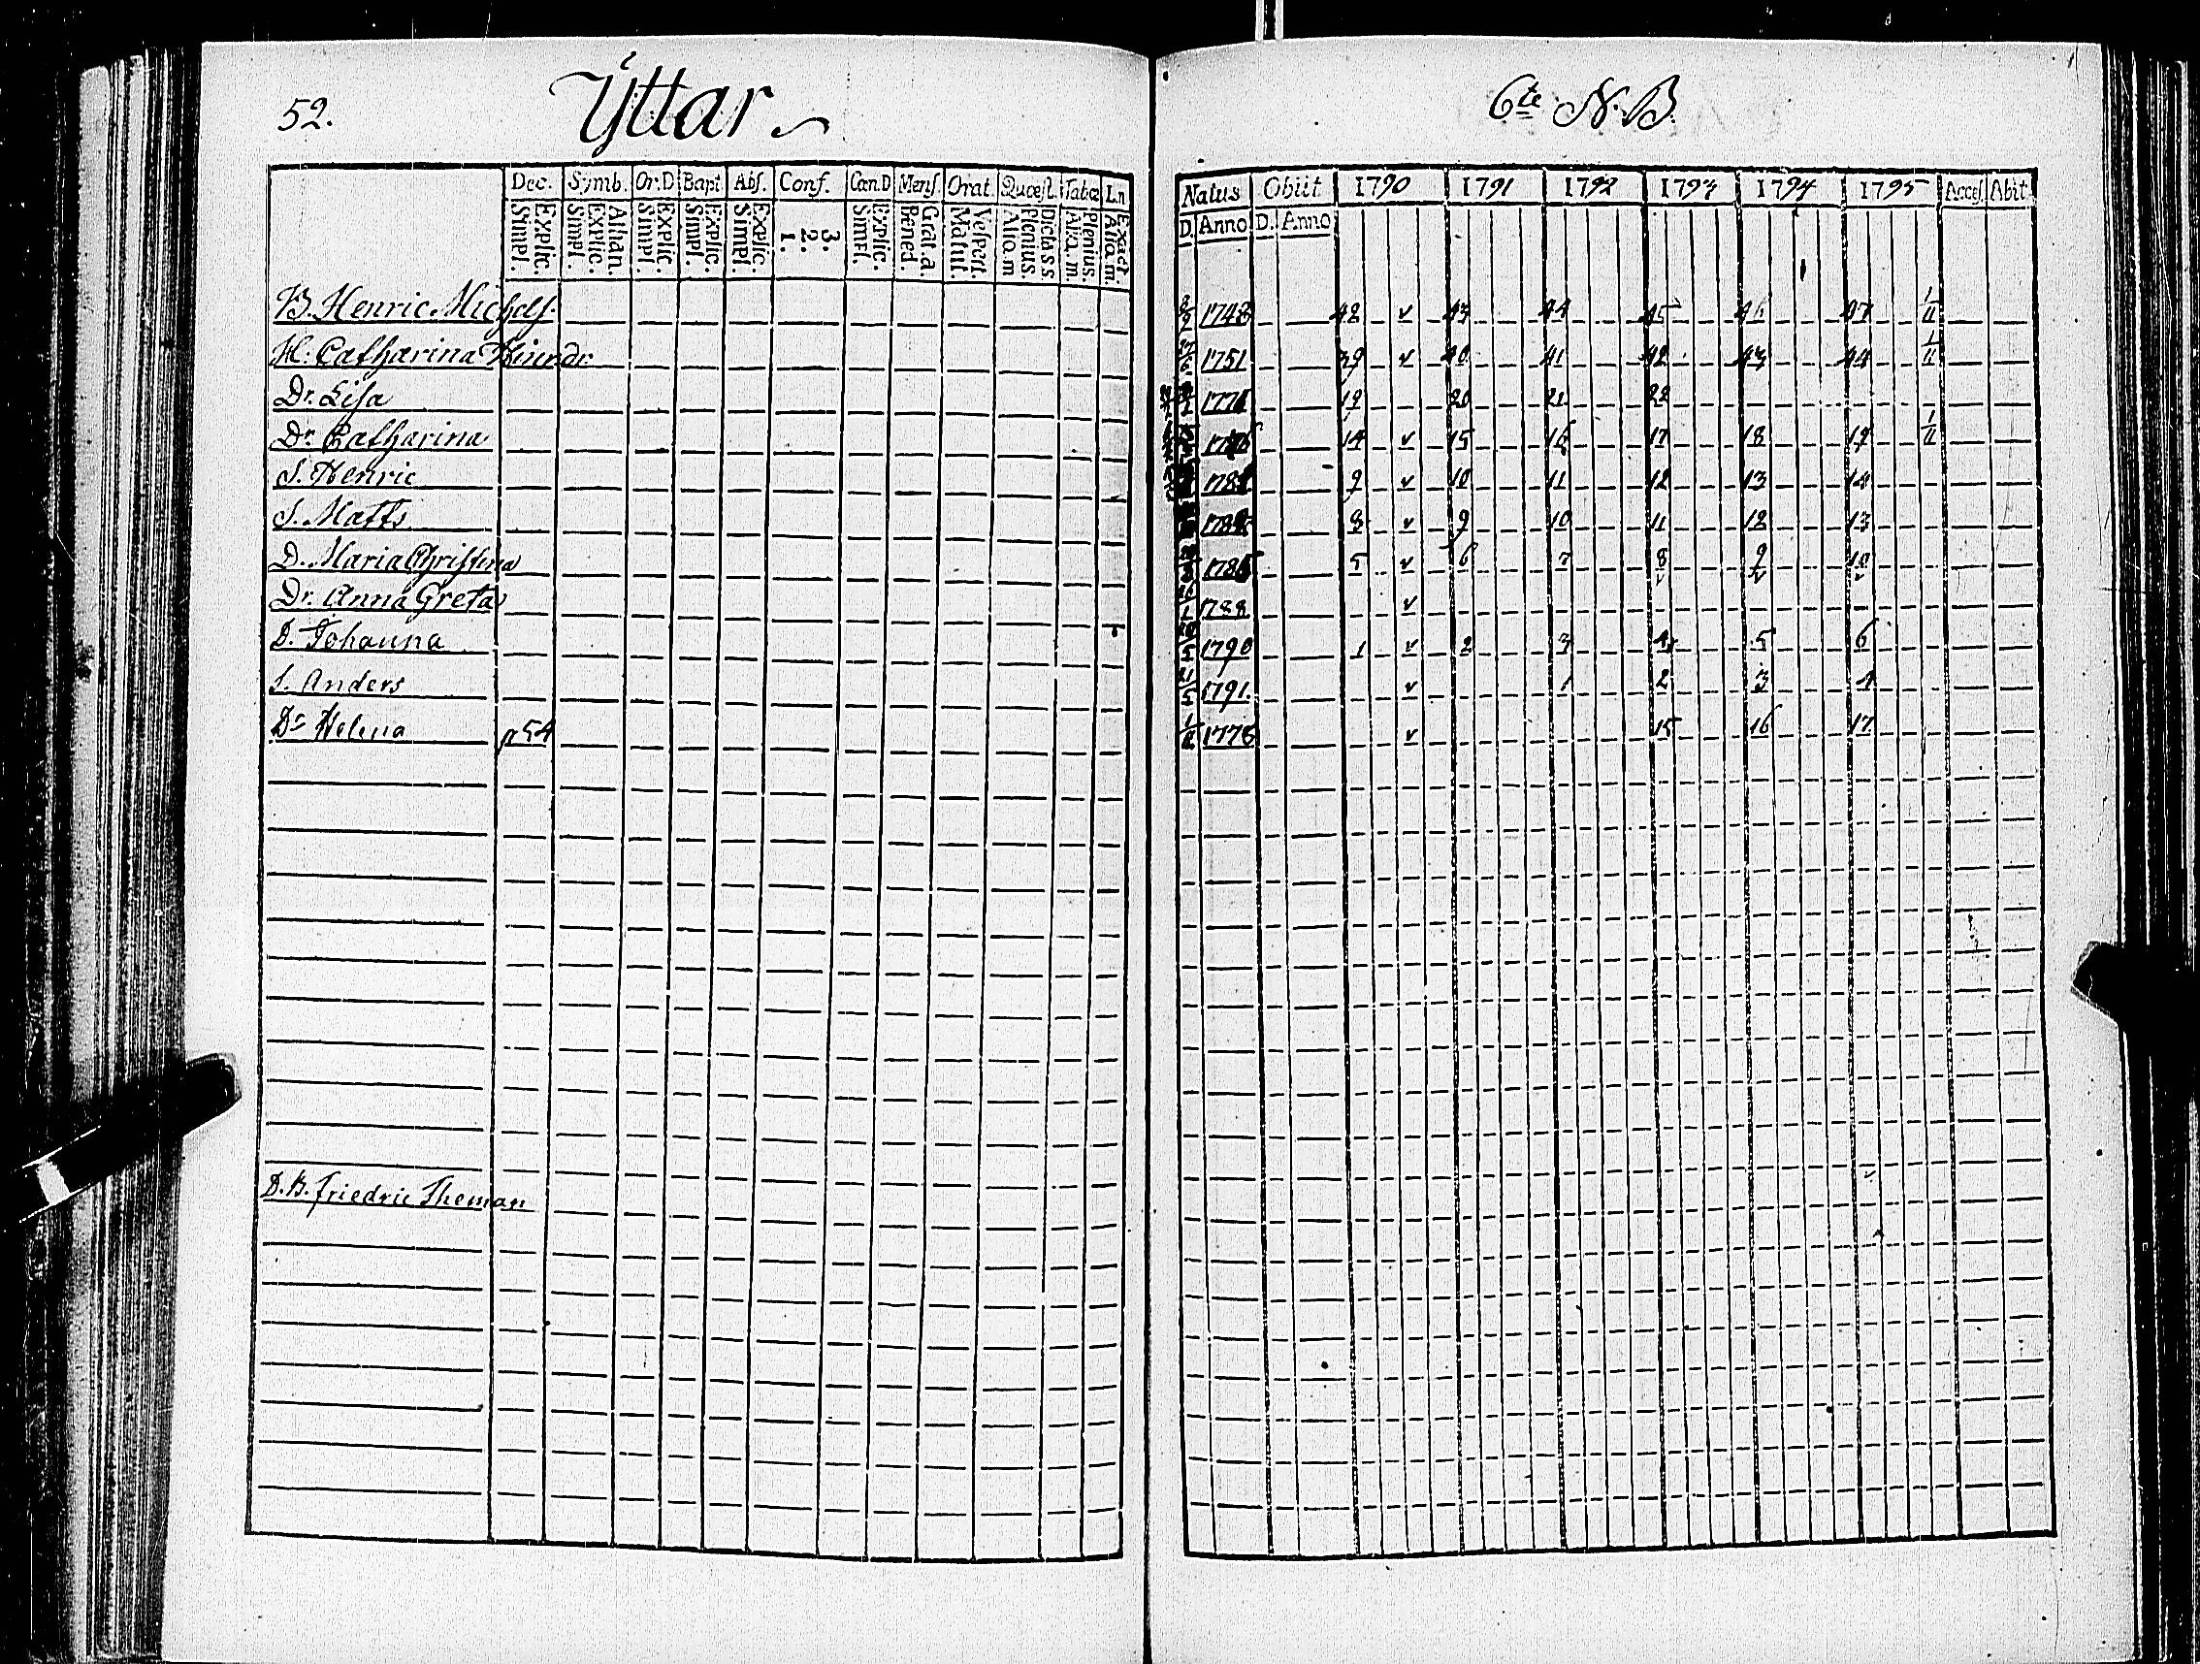 52. Yttar
6te N.B.
Dec. Symb. Or.D Bapt. Abs. Conf. Cœn.D Mens. Orat. Quæst. Tabœ Ln
Explic. Simpl. Athan. Explic. Simpl. Explic. Simpl. Explic. Simpl. Explic. Simpl. 3. 2. 1. Explic. Simpl. Grat.a. Bened. Vespert. Matut. Dictass. Plenius. Alio.m Plenius. Alia.m. Exact Alia m.
Natus Obiit 1790 1791 1792 1793 1794 1795 Acces. Abit
D. Anno D. Anno
B. Henric Michelſ. 1748 42 v 43 44 45 46 47 1/11
H. Catharina Hinrdr. 1751 39 v 40 41 42 43 44 1/11
Dr. Lisa 1771 19 20 21 22
Dr. Catharina 1776 14 v 15 16 17 18 19 1/11
S. Henric 1781 9 v 10 11 12 13 14
S. Matts 8 v 9 10 11 12 13
D. Maria Christina 1785 5 v 6 7 8 v 9 v 10 v
Dr. Anna Greta 1788. v
D. Johanna 1790 1 v 2 3 4 5 6
S. Anders 21/5 1791. v 1 2 3 4
Dr Helena p 54 1776 v 15 16 17
D.B. Friedric Theman